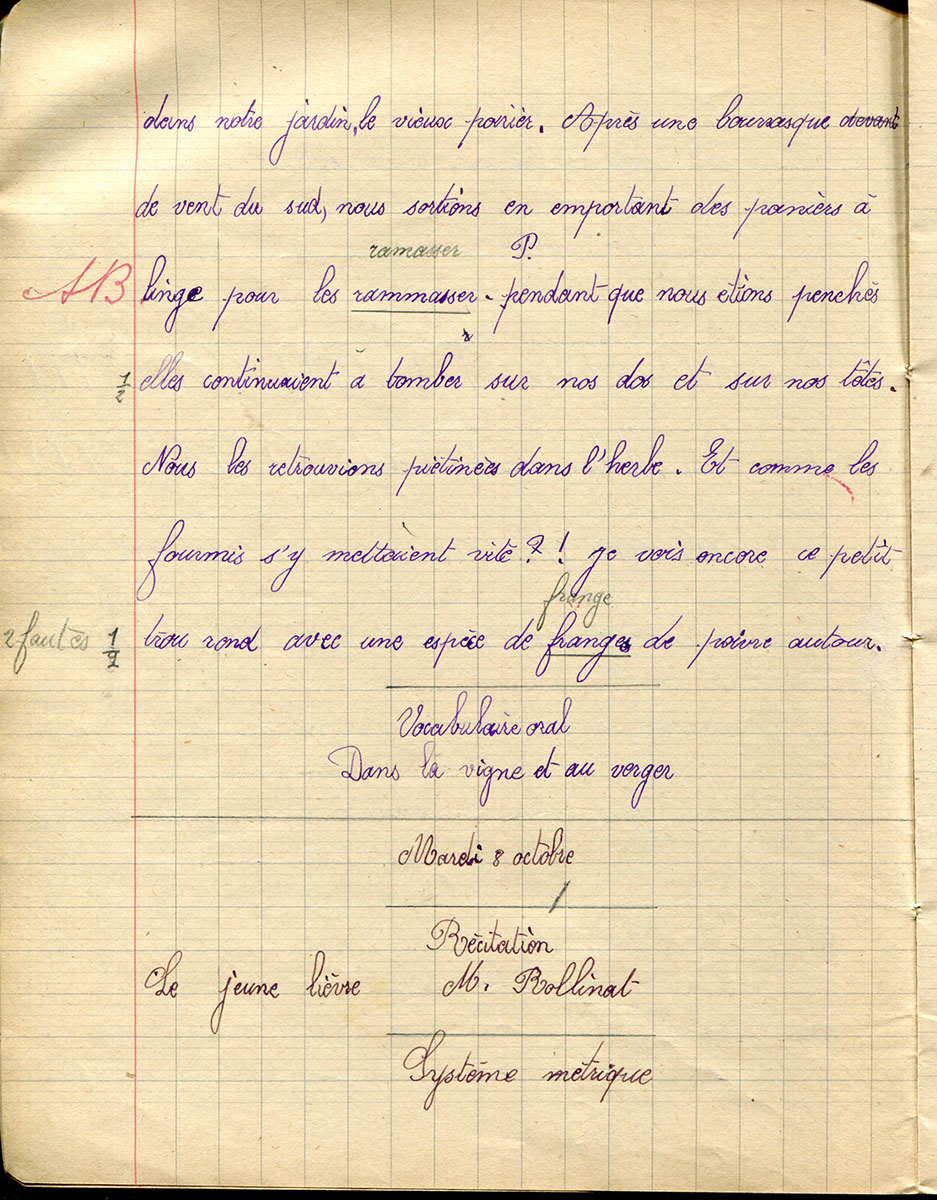 dans notre jardin, le vieux poirier. Après une bourrasque devant
de vent du sud, nous sortions en emportant des paniers à
ramasser P.
AB linge pour les rammasser. pendant que nous étions penchés
1/2 elles continuaient a tomber sur nos dos et sur nos têtes.
Nous les retrouvions piétinées dans l'herbe. Et comme les
fourmis s'y mettaient vite ? ! je vois encore ce petit
frange
2 fautes 1/2 trou rond avec une espèce de franges de poivre autour.
Vocabulaire oral
Dans la vigne et au verger
Mardi 8 octobre
Récitation
Le jeune lièvre M. Rollinat
Système métrique